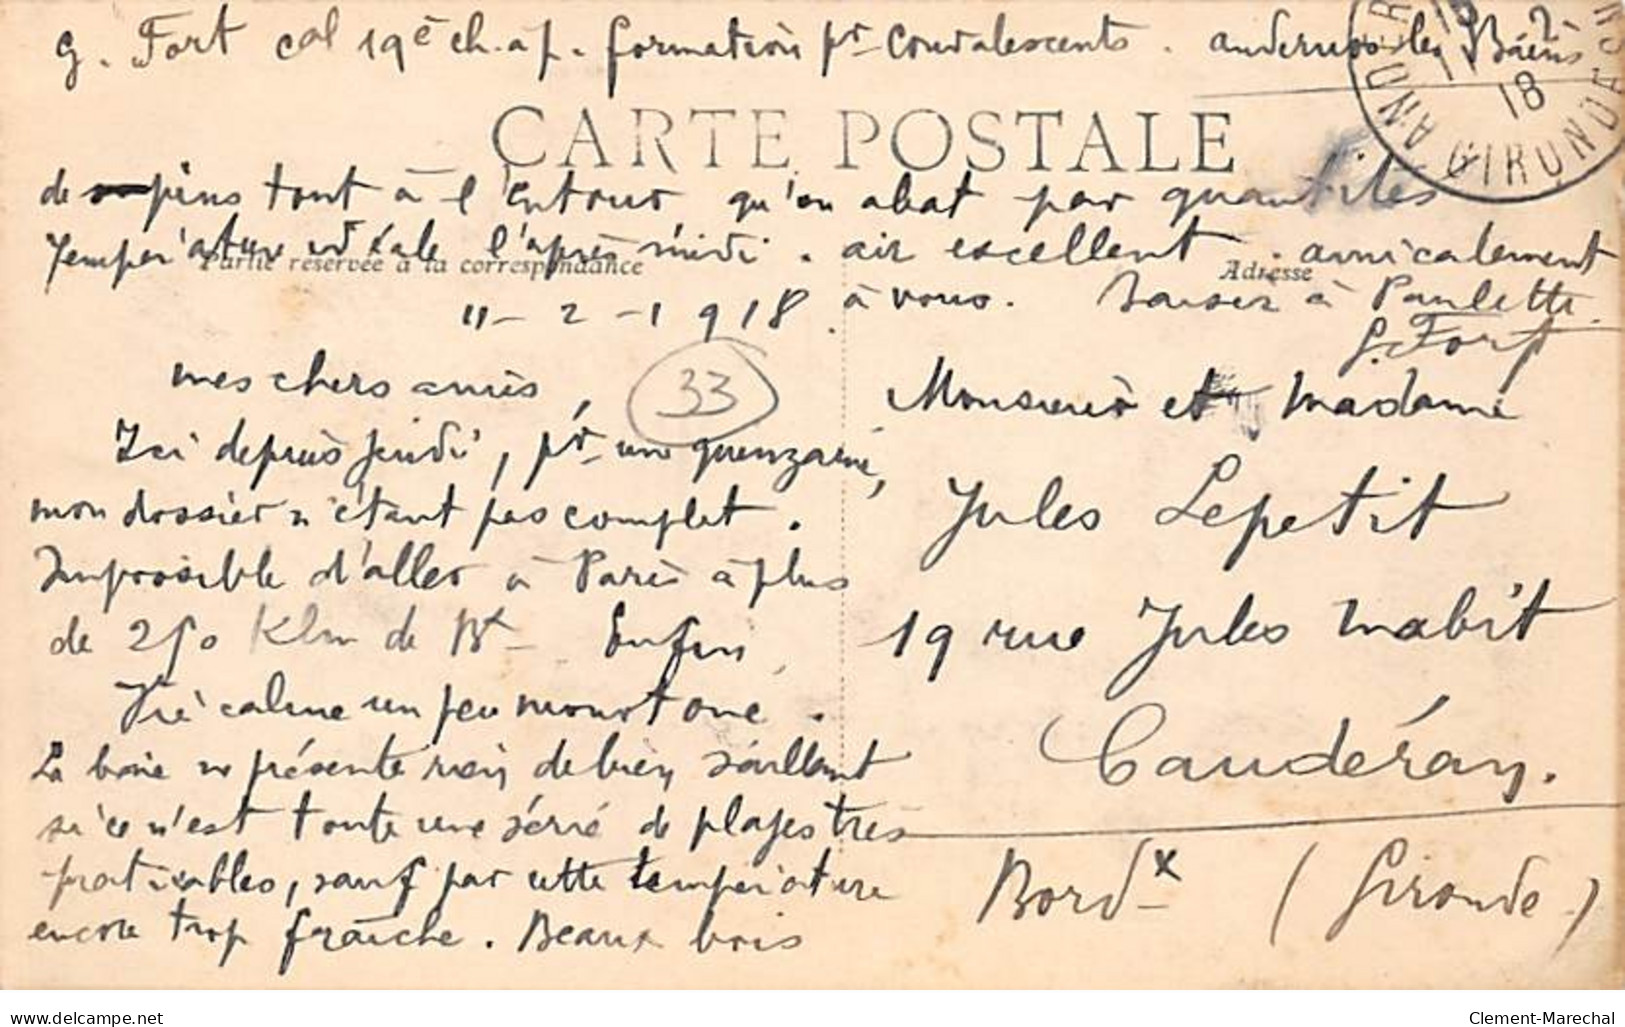 G. Fort cal 19e ch. à p. formation pr Convalescents. andernos les Bains
ANDERNOS GIRONDE
18
CARTE POSTALE
de pins tout à l'Entour qu'on abat par quantités
Température idéale l'après midi. air excellent. amicalement
Partie réservée à la correspondance
Adresse
à vous. Baisers à Paulette.
G. Fort
11-2-1918
mes chers amis,
33
Ici depuis jeudi, pr une quinzaine,
mon dossier n'étant pas complet.
Impossible d'aller à Paris à plus
de 250 Klm de Bx Enfin
Vie calme un peu monotone.
La baie ne présente rien de bien saillant
si ce n'est toute une série de plages très
praticables, sauf par cette température
encore trop fraîche. Beaux bois
Monsieur et Madame
Jules Lepetit
19 rue Jules Mabit
Caudéran.
Bordx (Gironde)
delcampe.net
Clement-Marechal